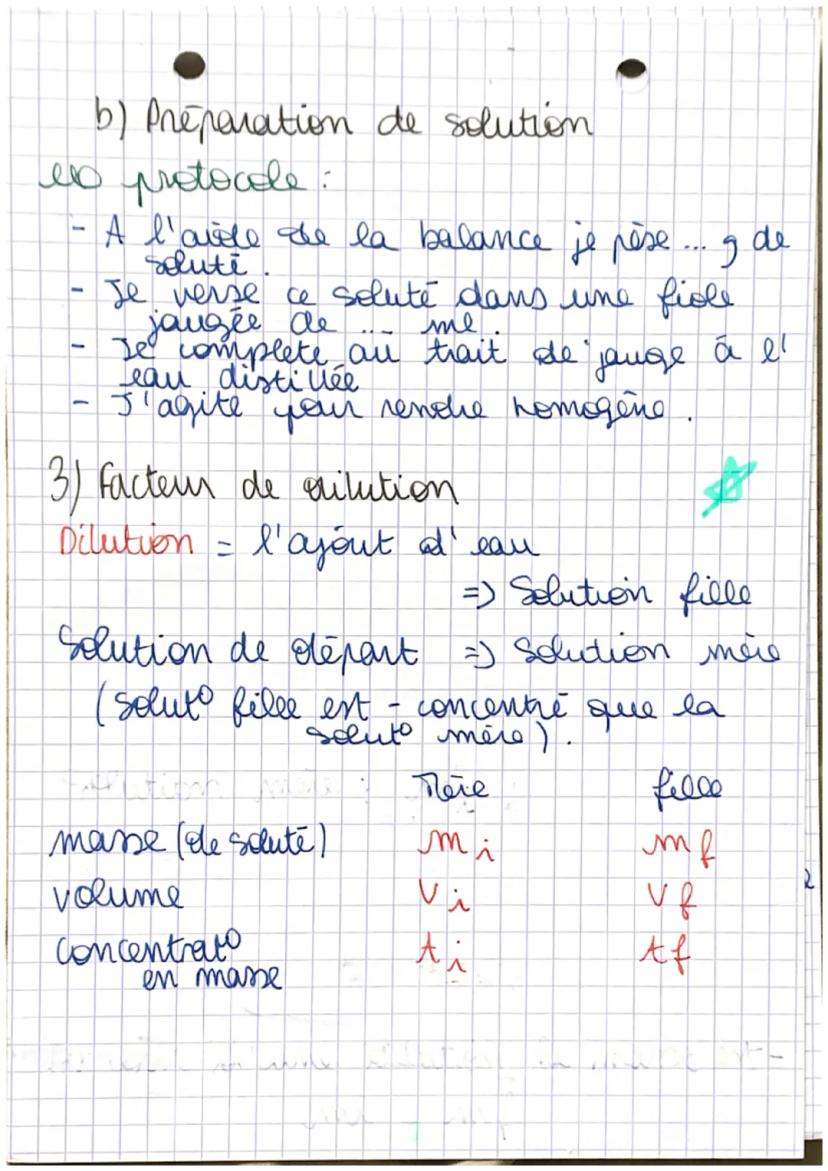 b) Préparation de solution
protocole :
- A l'aide de la balance je pèse ... g de
soluté.
- Je verse ce soluté dans une fiole
jaugée de ... ml.
- Je complete au trait de jauge à l'
eau distillée
- J'agite pour rendre homogène.
3) Facteur de dilution
Dilution = l'ajout d'eau
=> Solution fille
Solution de départ => Solution mère
(solut° fille est - concentré que la
solut° mère).
Mère fille
masse (de soluté) mi mf
volume Vi Vf
concentrat° ti tf
en masse